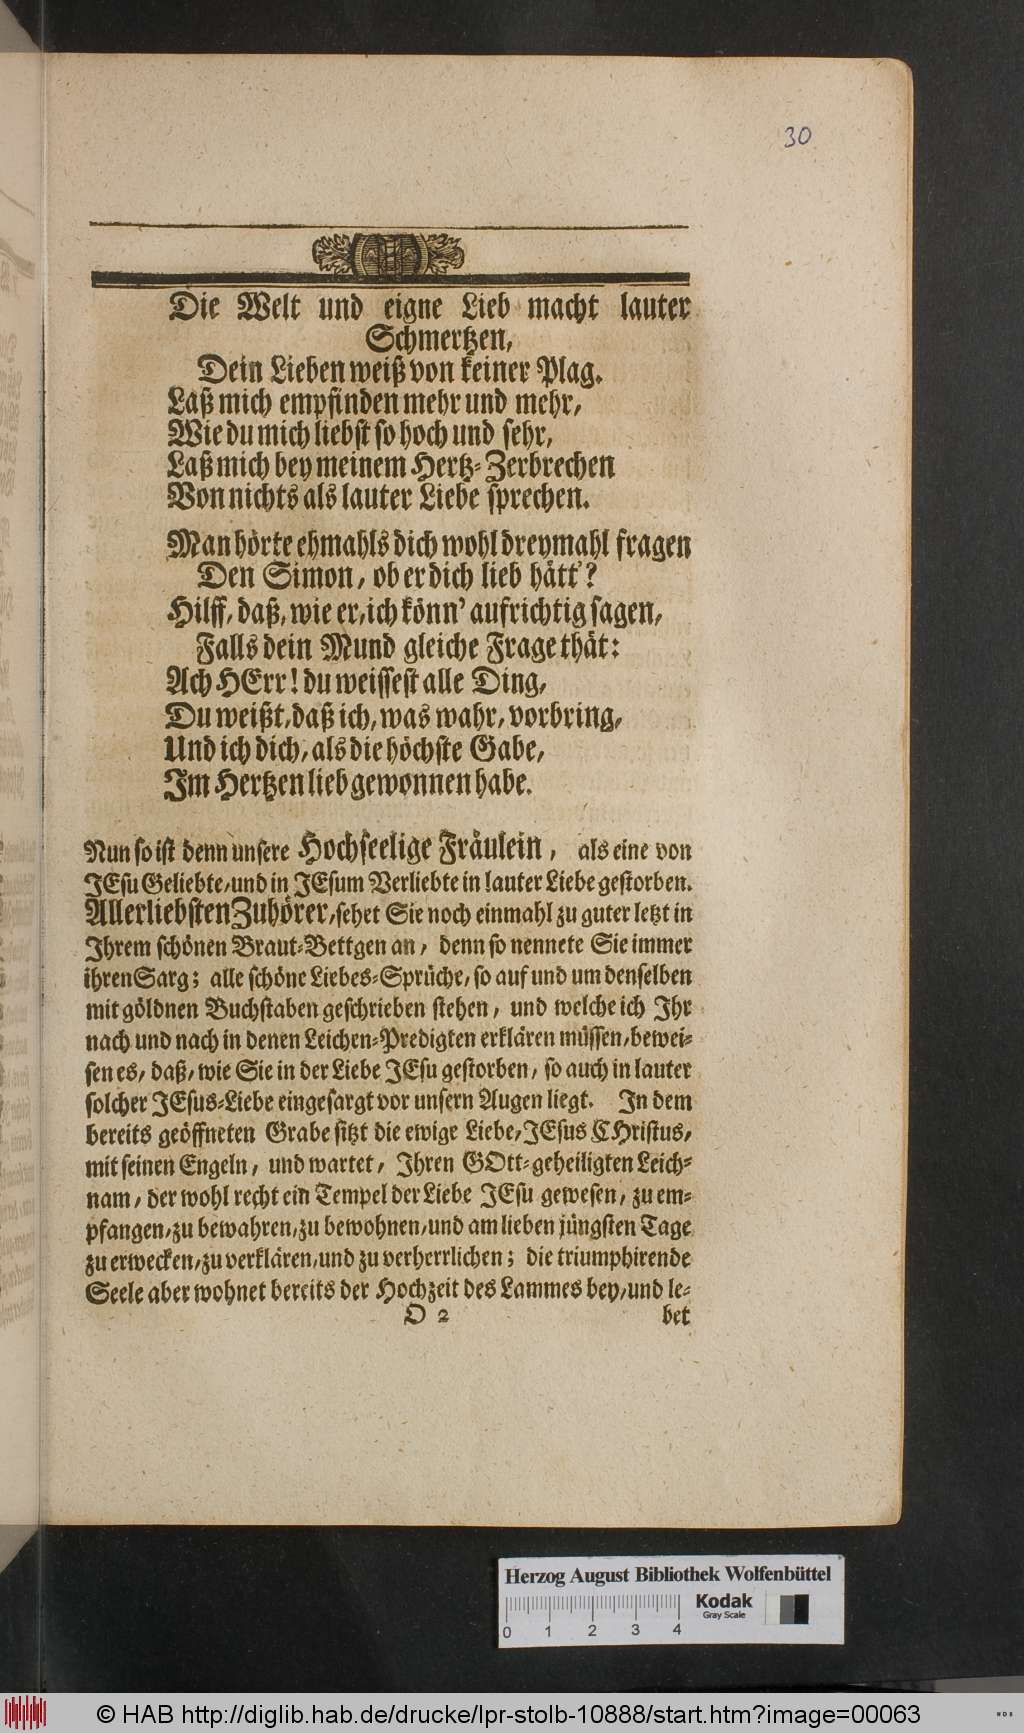 30
Die Welt und eigne Lieb macht lauter
Schmertzen,
Dein Lieben weiß von keiner Plag.
Laß mich empfinden mehr und mehr,
Wie du mich liebst so hoch und sehr,
Laß mich bey meinem Hertz-Zerbrechen
Von nichts als lauter Liebe sprechen.
Man hörte ehmahls dich wohl dreymahl fragen
Den Simon, ob er dich lieb hätt'?
Hilff, daß, wie er, ich könn' aufrichtig sagen,
Falls dein Mund gleiche Frage thät:
Ach HErr! du weissest alle Ding,
Du weißt, daß ich, was wahr, vorbring,
Und ich dich, als die höchste Gabe,
Im Hertzen lieb gewonnen habe.
Nun so ist denn unsere Hochseelige Fräulein, als eine von
JEsu Geliebte, und in JEsum Verliebte in lauter Liebe gestorben.
Allerliebsten Zuhörer, sehet Sie noch einmahl zu guter letzt in
Ihrem schönen Braut-Bettgen an, denn so nennete Sie immer
ihren Sarg; alle schöne Liebes-Sprüche, so auf und um denselben
mit göldnen Buchstaben geschrieben stehen, und welche ich Ihr
nach und nach in denen Leichen-Predigten erklären müssen, bewei-
sen es, daß, wie Sie in der Liebe JEsu gestorben, so auch in lauter
solcher JEsus-Liebe eingesargt vor unsern Augen liegt. In dem
bereits geöffneten Grabe sitzt die ewige Liebe, JEsus CHristus,
mit seinen Engeln, und wartet, Ihren GOtt-geheiligten Leich-
nam, der wohl recht ein Tempel der Liebe JEsu gewesen, zu em-
pfangen, zu bewahren, zu bewohnen, und am lieben jüngsten Tage
zu erwecken, zu verklären, und zu verherrlichen; die triumphirende
Seele aber wohnet bereits der Hochzeit des Lammes bey, und le-
O 2 bet
Herzog August Bibliothek Wolfenbüttel
Kodak
Gray Scale
0 1 2 3 4
© HAB http://diglib.hab.de/drucke/lpr-stolb-10888/start.htm?image=00063